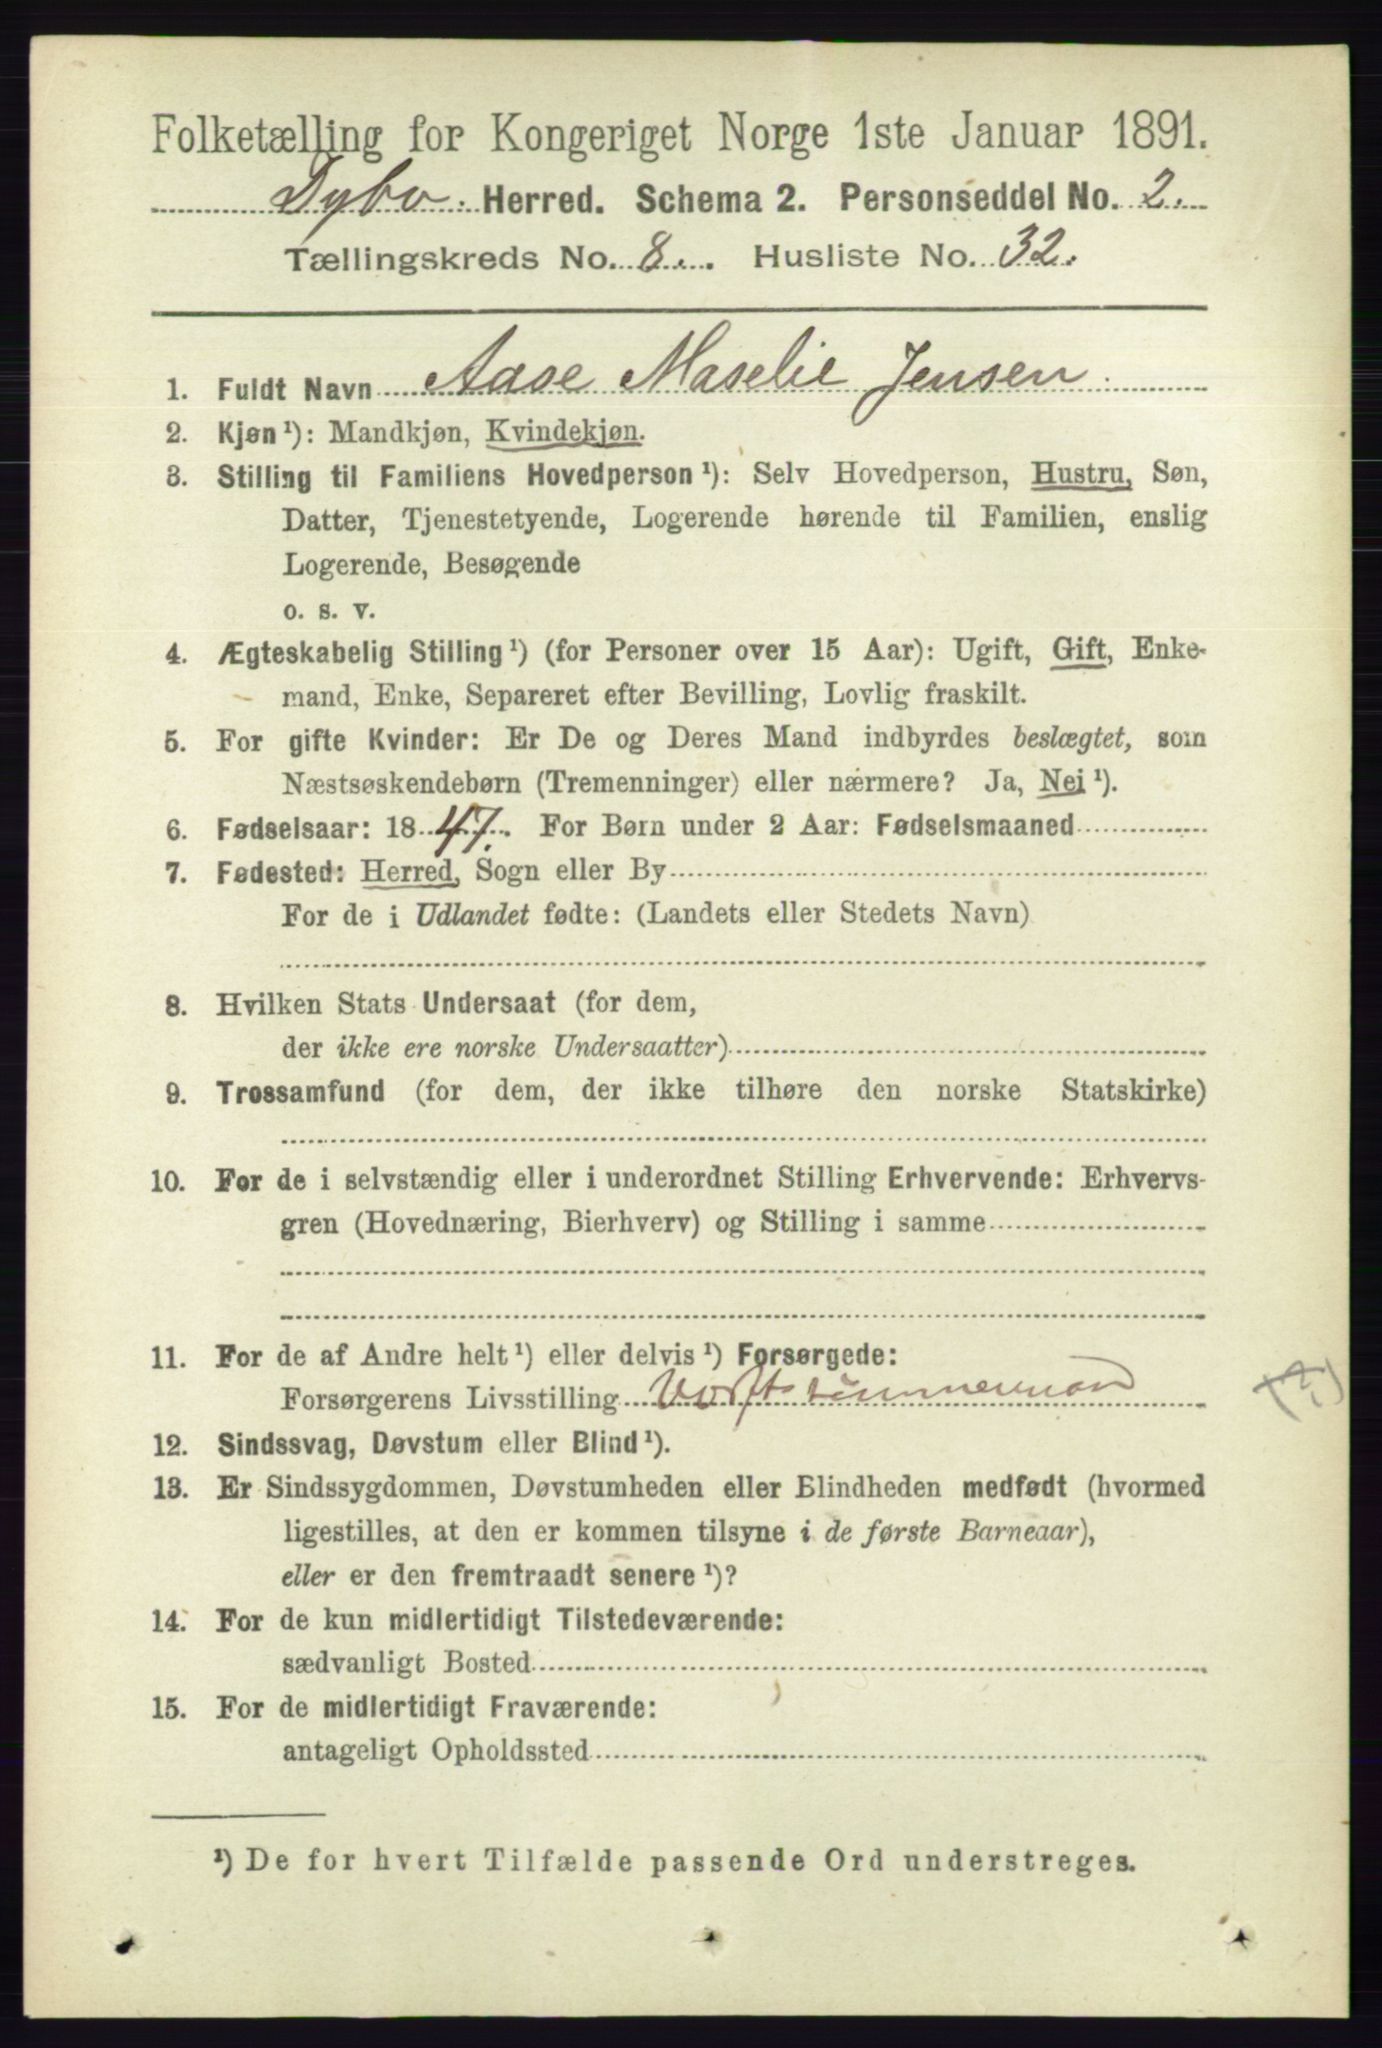 Folketælling for Kongeriget Norge 1ste Januar 1891.
Dybv. Herred. Schema 2. Personseddel No. 2.
Tællingskreds No. 8. Husliste No. 32.
1. Fuldt Navn Aase Maselie Jensen
2. Kjøn ¹): Mandkjøn, Kvindekjøn.
3. Stilling til Familiens Hovedperson ¹): Selv Hovedperson, Hustru, Søn,
Datter, Tjenestetyende, Logerende hørende til Familien, enslig
Logerende, Besøgende
o. s. v.
4. Ægteskabelig Stilling ¹) (for Personer over 15 Aar): Ugift, Gift, Enke-
mand, Enke, Separeret efter Bevilling, Lovlig fraskilt.
5. For gifte Kvinder: Er De og Deres Mand indbyrdes beslægtet, som
Næstsøskendebørn (Tremenninger) eller nærmere? Ja, Nei ¹).
6. Fødselsaar: 1847. For Børn under 2 Aar: Fødselsmaaned
7. Fødested: Herred, Sogn eller By
For de i Udlandet fødte: (Landets eller Stedets Navn)
8. Hvilken Stats Undersaat (for dem,
der ikke ere norske Undersaatter)
9. Trossamfund (for dem, der ikke tilhøre den norske Statskirke)
10. For de i selvstændig eller i underordnet Stilling Erhvervende: Erhvervs-
gren (Hovednæring, Bierhverv) og Stilling i samme
11. For de af Andre helt ¹) eller delvis ¹) Forsørgede:
Forsørgerens Livsstilling Værftstømmermand
12. Sindssvag, Døvstum eller Blind ¹).
13. Er Sindssygdommen, Døvstumheden eller Blindheden medfødt (hvormed
ligestilles, at den er kommen tilsyne i de første Barneaar),
eller er den fremtraadt senere ¹)?
14. For de kun midlertidigt Tilstedeværende:
sædvanligt Bosted
15. For de midlertidigt Fraværende:
antageligt Opholdssted
¹) De for hvert Tilfælde passende Ord understreges.